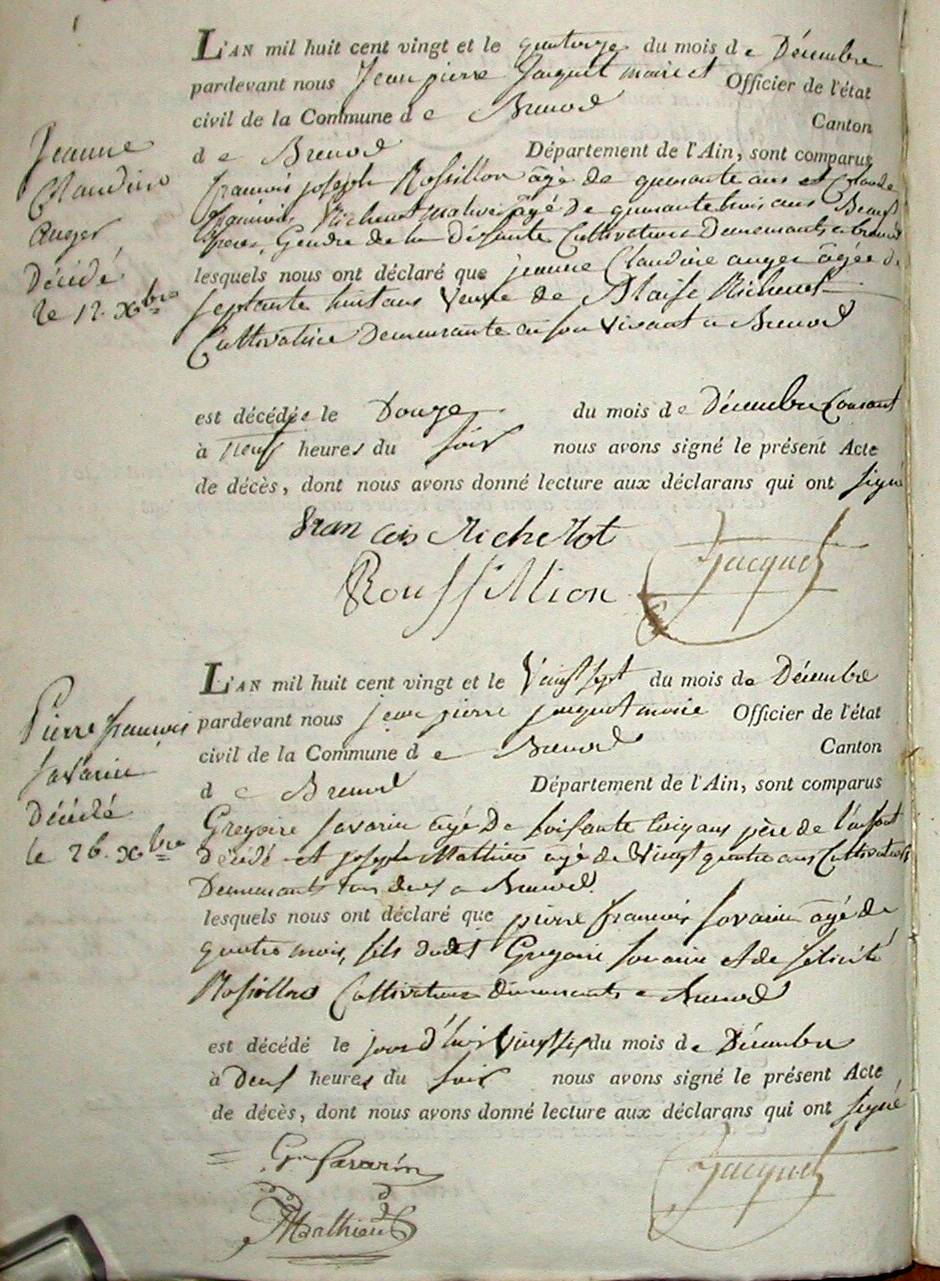 L'AN mil huit cent vingt et le quatorze du mois de Décembre
pardevant nous Jean pierre Jacquet maire et Officier de l'état
civil de la Commune de Brenod Canton
de Brenod Département de l'Ain, sont comparus
francois joseph Rossillon agé de quarante ans et Claude
francois Michenot agé de quarante trois ans Beaux
freres, Gendre de la Défunte Cultivateurs Demeurants a brenod
lesquels nous ont déclaré que jeanne Claudine auger agée de
septante huit ans Veuve de Blaise Michenet
Cultivatrice Demeurante en son Vivant a Brenod
Jeanne
Claudine
auger
Décédé
le 12. Xbre
est décédée le Douze du mois de Décembre Courant
à neuf heures du soir nous avons signé le présent Acte
de décès, dont nous avons donné lecture aux déclarans qui ont signé
francois Michellot
Roussillion Jacquet
L'AN mil huit cent vingt et le Vingt sept du mois de Décembre
pardevant nous jean pierre jacquet maire Officier de l'état
civil de la Commune de Brenod Canton
de Brenod Département de l'Ain, sont comparus
Gregoire Savarin agé De soisante ans père de l'enfant
décédé et joseph Mathieu agé de Vingt quatre ans Cultivateurs
Demeurants tous deux a Brenod.
lesquels nous ont déclaré que pierre francois Savarin agé de
quatre mois, fils dudit Gregoire Savarin et de félicité
Rossillon Cultivateurs demeurants a Brenod
Pierre françois
Savarin
Décédé
le 26. Xbre
est décédé le jour d'hier Vingt six du mois de Décembre
à Deux heures du soir nous avons signé le présent Acte
de décès, dont nous avons donné lecture aux déclarans qui ont signé
Gre Savarin Jacquet
JMathieu